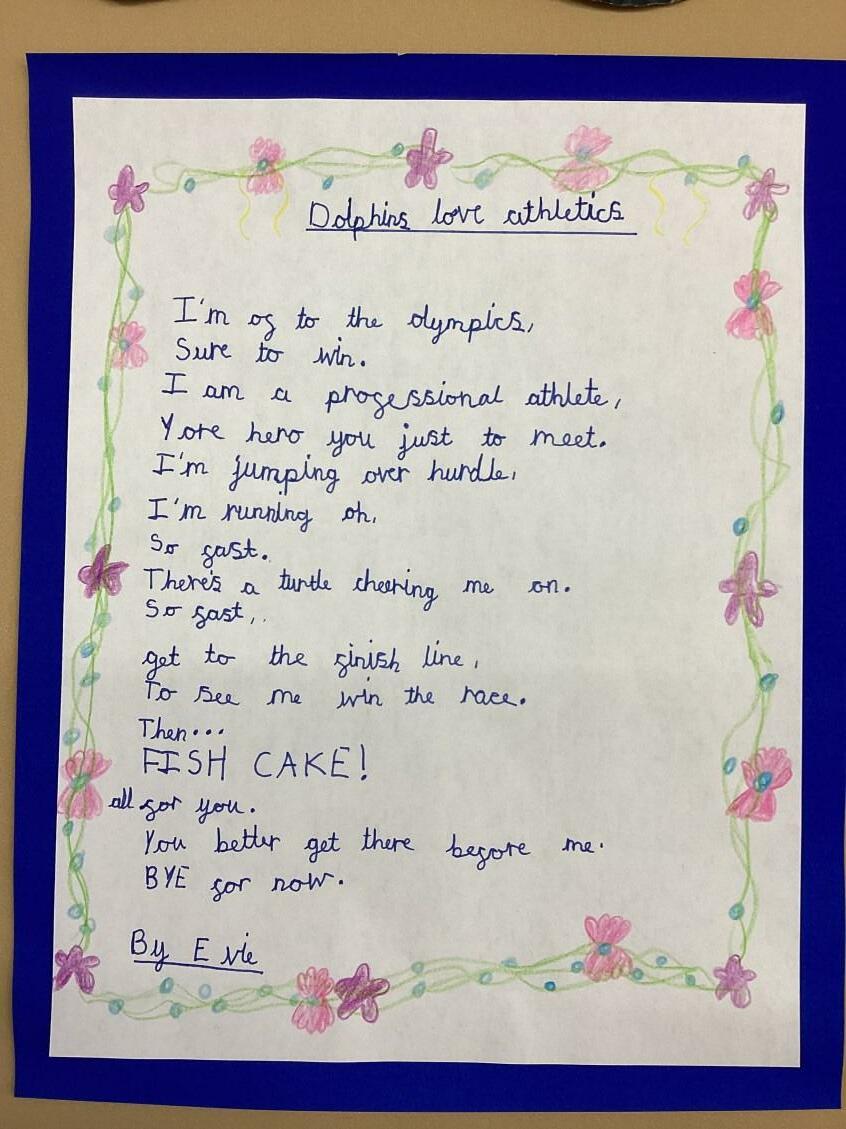 Dolphins love athletics
I'm of to the olympics,
Sure to win.
I am a professional athlete,
Yore hero you just to meet.
I'm jumping over hurdle,
I'm running oh,
So fast.
There's a turtle cheering me on.
So fast,.
get to the finish line,
To see me win the race.
Then...
FISH CAKE!
all for you.
You better get there before me.
BYE for now.
By Evie